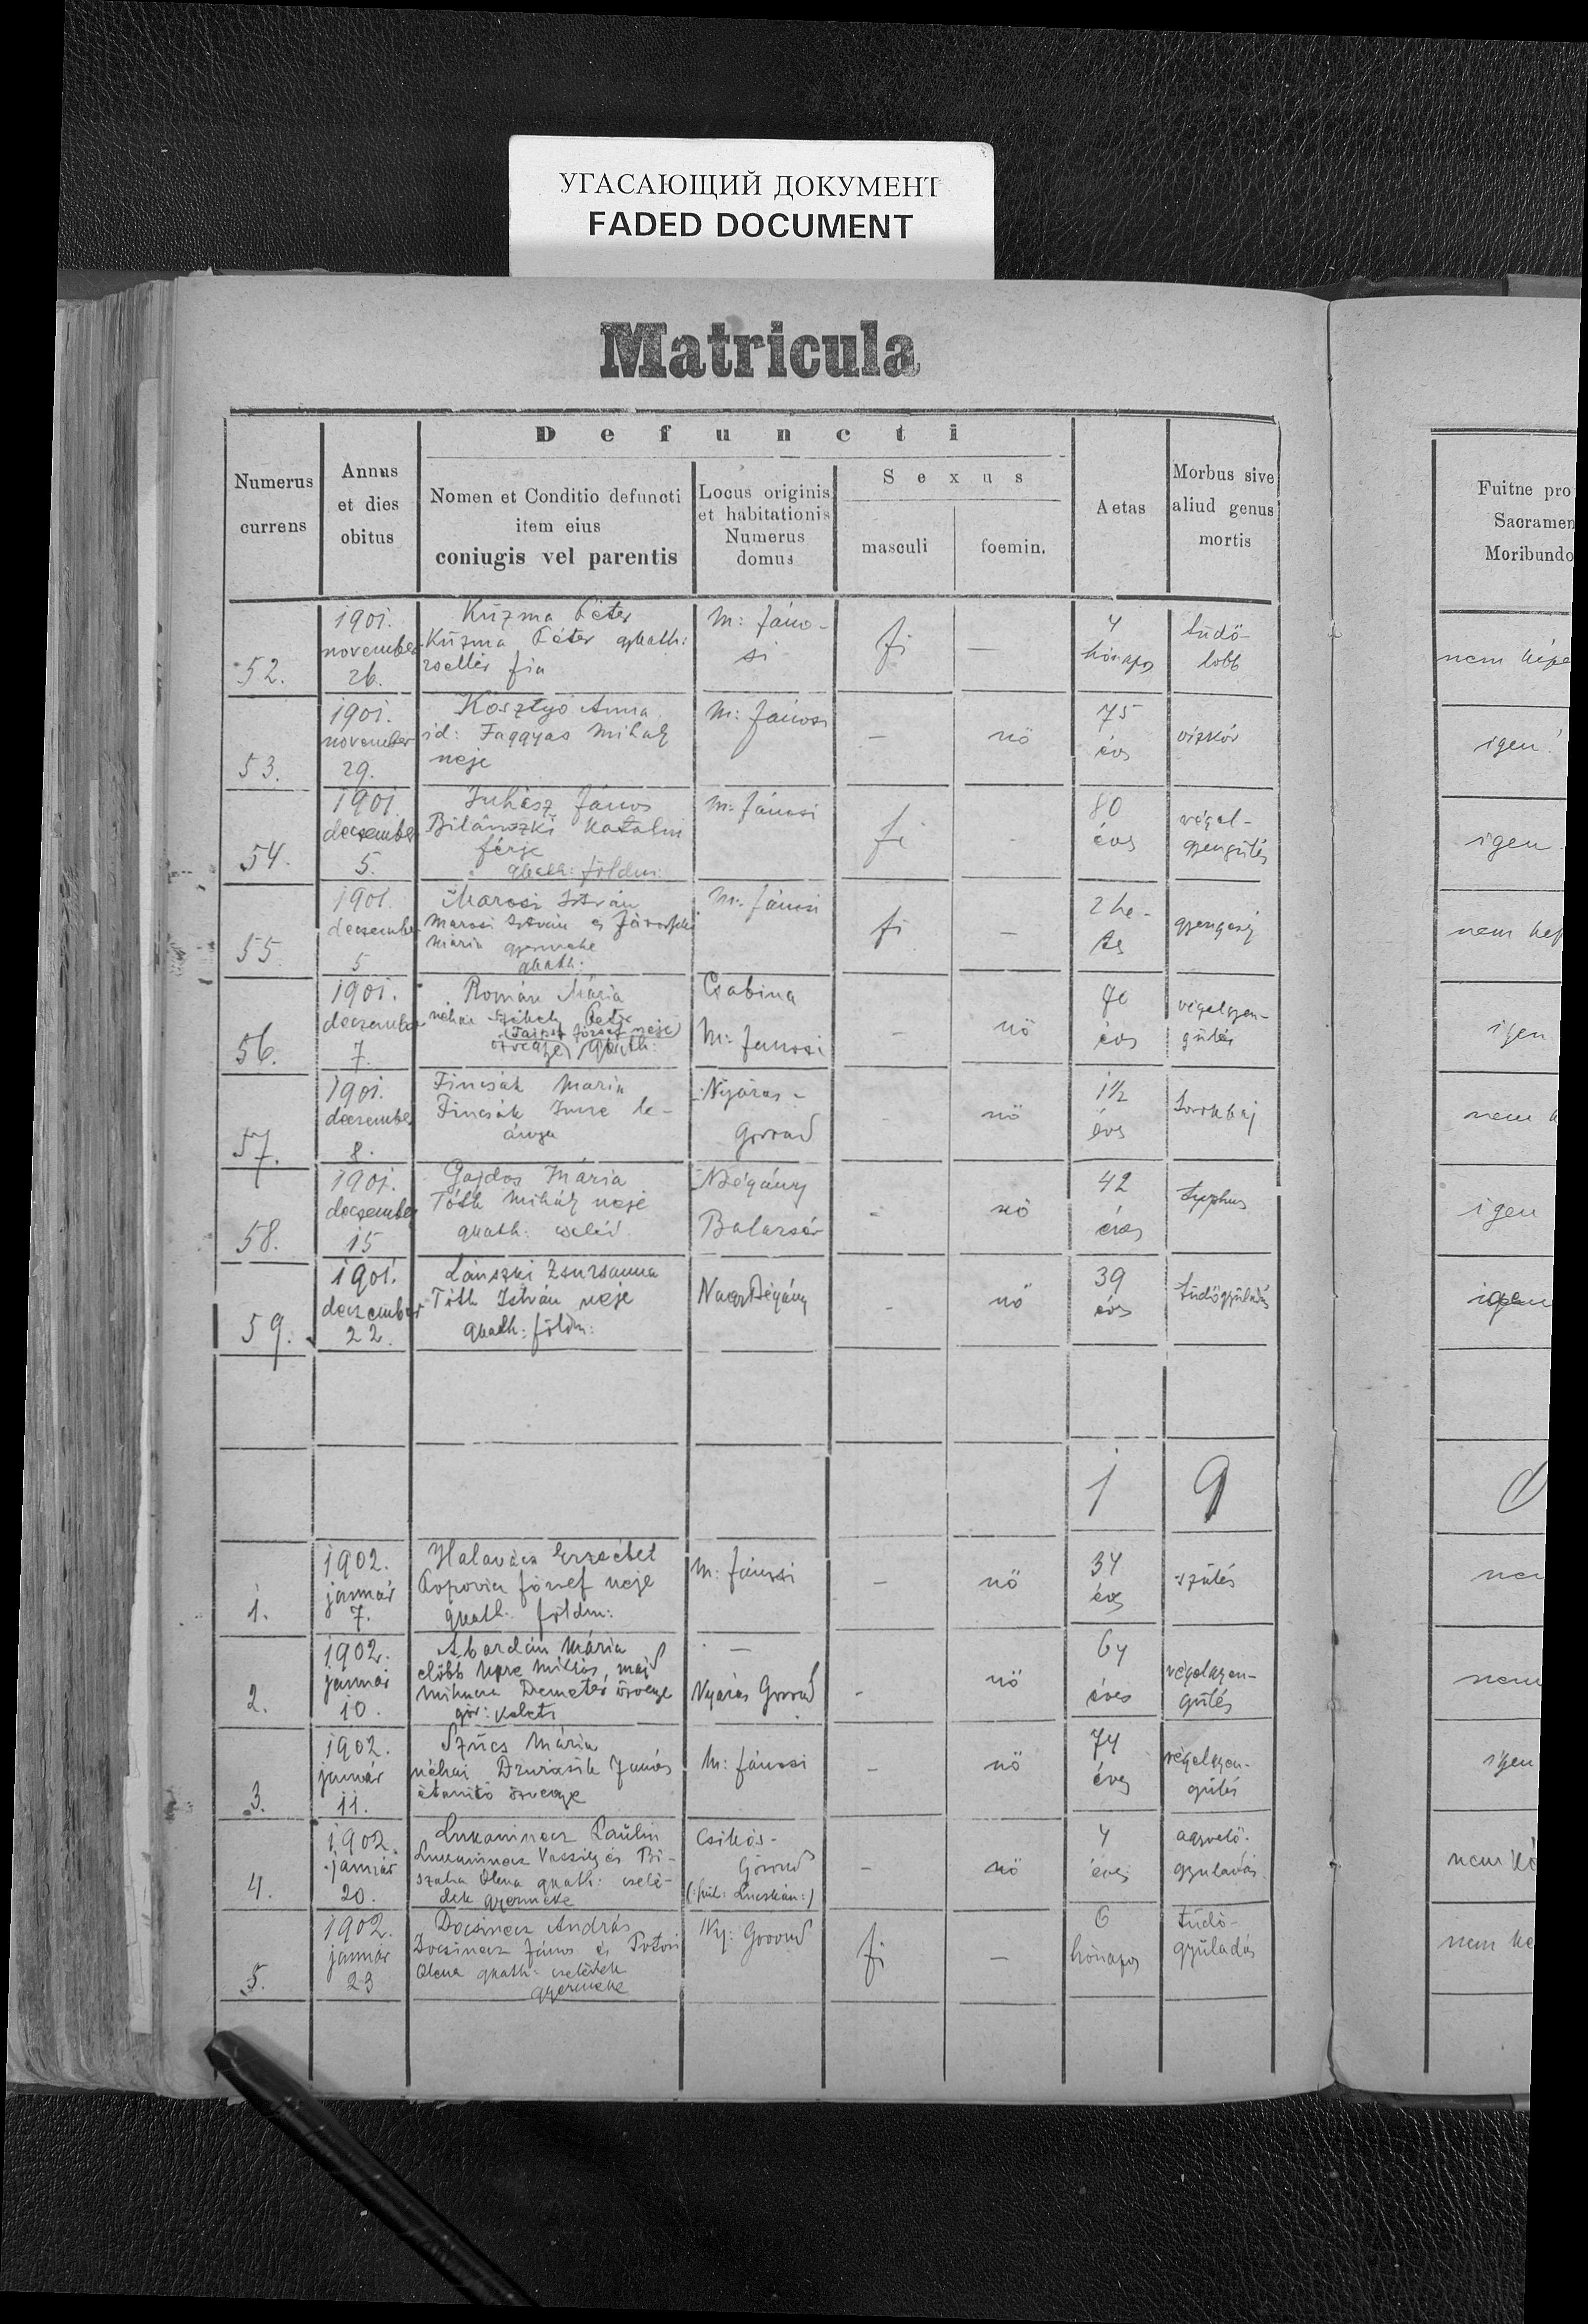 УГАСАЮЩИЙ ДОКУМЕНТ
FADED DOCUMENT
Matricula
Defuncti
Numerus currens
Annus et dies obitus
Nomen et Conditio defuncti
item eius
coniugis vel parentis
Locus originis
et habitationis
Numerus
domus
Sexus
masculi
foemin.
Aetas
Morbus sive
aliud genus
mortis
Fuitne pro
Sacramen
Moribundo
52.
1901.
november
26.
Kuzma Péter
Kuzma Péter gkath:
zsellér fia
M: Jáno-
si
fi
—
4
hónapos
tüdö-
lobb
nem képe
53.
1901.
november
29.
Kosztyó Anna
id: Faggyas Mihály
neje
M: Jánosi
—
nö
75
éves
vizkór
igen!
54.
1901
deczember
5.
Juhász János
Bilánszki Katalin
férje
gkath: földm:
M: Jánosi
fi
-
80
éves
végel-
gyengülés
igen.
55
1901.
deczember
5
Marosi István
Marosi István és
Mária gyermeke
gkath.
M: Jánosi
fi
—
2 he-
tes
gyengeség
nem kép
56.
1901.
deczember
7.
Román Mária
néhai
József neje)
özvegye) gkath:
Csabina
M: Janosi
-
nö
éves
végelgyen-
gülés
igen
57.
1901.
deczember
8.
Fincsák Maria
Fincsák Imre le-
ánya
Nyáras-
Gorond
-
nö
1½
éves
torokbaj
nem
58.
1901.
deczember
15
Gajdos Mária
Tóth Mihály neje
gkath. cseléd
NBégány
Balazsér
-
nö
42
éves
typhus
igen
59.
1901.
deczember
22.
Lánszki Zsuzsanna
Tóth István neje
gkath: földm:
Nagy Bégány
-
nö
39
éves
tüdögyuladás
igen
1
9
1.
1902.
január
7.
Halavács Erzsébet
Popovics József neje
gkath. földm:
M: Jánosi
—
nö
34
éves
szülés
nem
2.
1902.
január
10.
Mária
elöbb Miklós, majd
Demeter özvegye
gör: keleti
—
Nyáras Gorond
-
nö
64
éves
végelgyen-
gülés
nem
3.
1902.
január
11.
Szücs Mária
néhai János
özvegye
M: Jánosi
-
nö
74
éves
végelgyen-
gülés
igen
4.
1902.
január
20.
Lukaninecz Paulin
Lukaninecz Vaszily és Bi-
szaha Olena gkath: cselé-
dek gyermeke
Csikós-
Gorond
(:szül: Lucskán:)
-
nö
4
éves
agyvelö-
gyuladás
nem
5.
1902.
január
23
Docsinecz András
Docsinecz János és
Olena gkath: cselédek
gyermeke
Ny: Gorond
fi
—
6
hónapos
tüdö-
gyúladás
nem ké